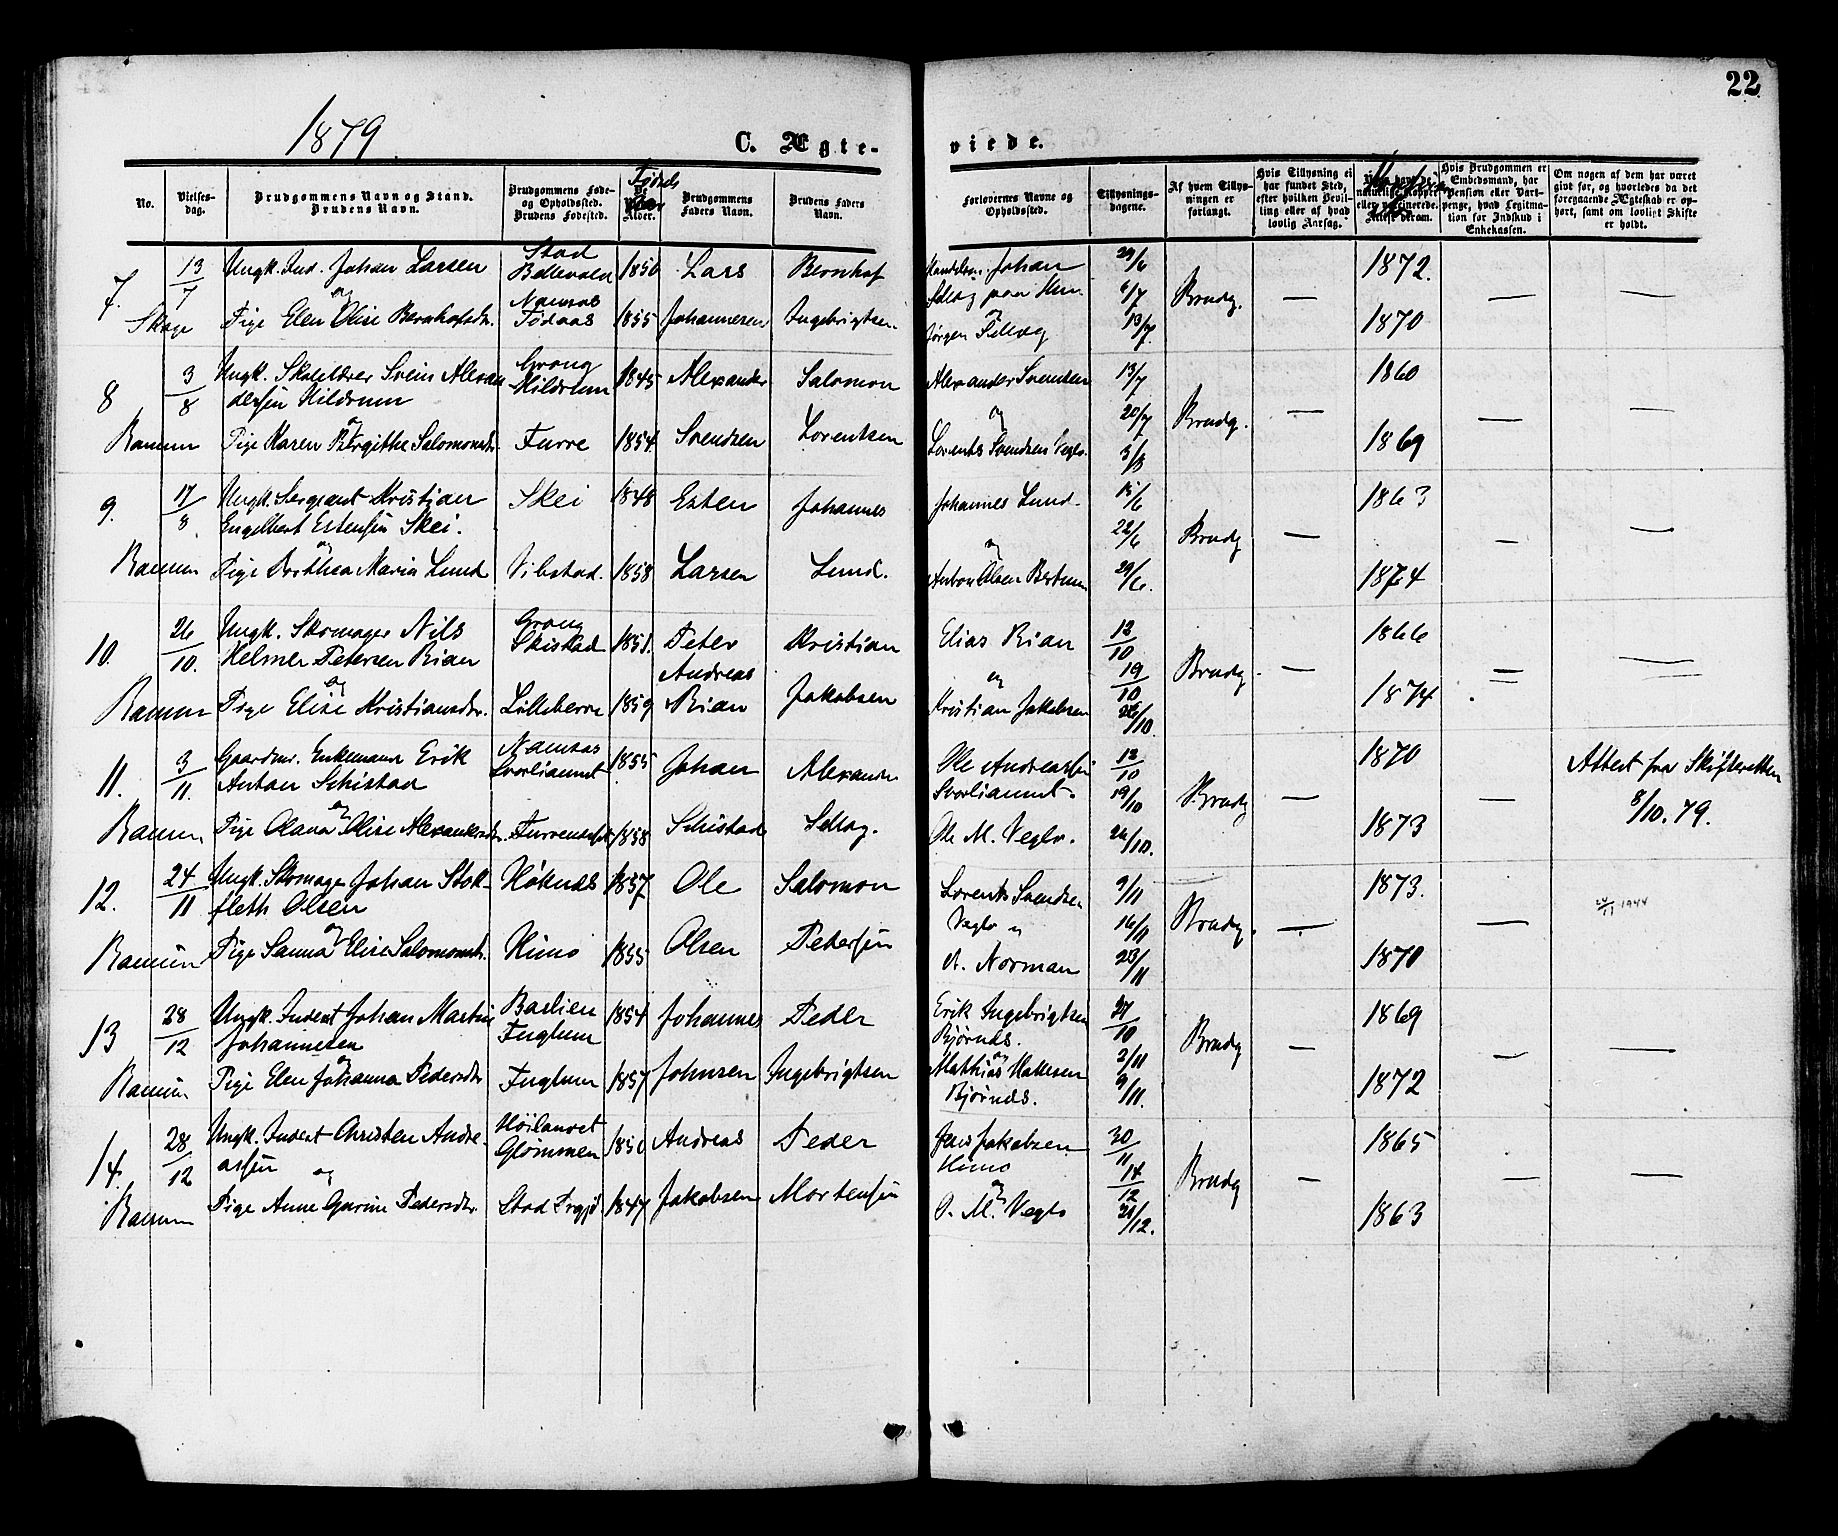 22
1879
C. Ægte-
viede.
No.
Vielses-
dag.
Brudgommens Navn og Stand.
Brudens Navn.
Brudgommens Føde-
og Opholdssted.
Brudens Fødested.
Fødsels
Alder.
Brudgommens
Faders Navn.
Brudens Faders
Navn.
Forlovernes Navne og
Opholdssted.
Tillysnings-
dagene.
Af hvem Tillys-
ningen er
forlangt.
Hvis Tillysning ei
har fundet Sted,
efter hvilken Bevil-
ling eller af hvad
lovlig Aarsag.
Hvis Brudgommen er
Embedsmand, har
Pension eller Vart-
penge, hvad Legitma-
tion for Indskud i
Enkekassen.
Om nogen af dem har været
givt før, og hvorledes da det
foregaaende Ægteskab er op-
hørt, samt om lovligt Skifte
er holdt.
7. 13/7 Ungk. Ind. Johan Larsen Stad 1850 Lars Bernhof Johan 29/6 1872.
og Namsos 6/7 Brudg. — — —
Skage Pige Elen Olise Bernhofsdr. 1855 Johannesen Ingebrigtsen Jørgen Selløg 13/7. 1870
8 3/8 Ungk. Skolelærer Svein Alexan Grong 1845 Alexander Salomon Alexander Svendsen 13/7 1860
dersen Mildrum Mildrum
og og 20/7 Brudg. — — —
Ranum Pige Karen Birgitte Salomonsdr. Furre 1854 Svendsen Lorentsen Lorents Svendsen 3/8 1869
9. 17/8 Ungk. Sergeant Kristian Skei 1848 Esten Johannes Johannes Lund. 15/6 1863
Engelbert Estensen Skei.
og og 22/6 Brudg — — —
Ranum Pige Dorthea Maria Lund Vibstad. 1858 Larsen Lund. Anton Olsen 29/6. 1874
10. 26/10. Ungk. Skomager Nils Grong 1851. Peter Kristian Elias Rian 12/10 1866
Helmer Petersen Rian Skistad Andreas
og og 19/10 Brudg. — — —
Ranum Pige Elise Kristiansdr. 1859 Rian Jakobsen Kristian Jakobsen 26/10. 1874
11. 3/11. Gaardmr. Enkemand Erik Namsos 1855 Johan Alexander Ole 12/10 1870 Attest fra Skifteretten
Antan Schistad 19/10 Brudg — — 8/10. 79.
og
Ranum Pige Olava Olise Alexandersdr. 1858 Schistad Selløg. Ole M. 26/10. 1873
12. 24/11 Ungk. Skomager Johan Stok- Høknes 1857 Ole Salomon Lorents Svendsen 9/11 1873.
fleth Olsen
og 16/11 Brudg. — — 24/11 1944
Ranum Pige Sanna Elise Salomonsdr. Himo 1855 Olsen Petersen A. Norman 23/11 1870
13 28/12 Ungk. Inderst Johan Martin Barlien 1854 Johannes Peder Erik Ingebrigtsen 1869
Johannesen Fuglum Bjørnes. Brudg — — —
og og 2/11
Ranum Pige Elen Johanna Pedersdr Fuglum 1857 Johnsen Ingebrigtsen Mathias 9/11. 1872
Bjørnes.
14. 28/12 Ungk. Inderst Christen Andre- Høilandet 1850 Andreas Peder Jens Jakobsen 30/11 1865
assen Glømmen Himo
og og 14/12 Brudg — — —
Ranum Pige Anne Gurine Pedersdr. 1847 Jakobsen Mortensen O. M. 21/12. 1863